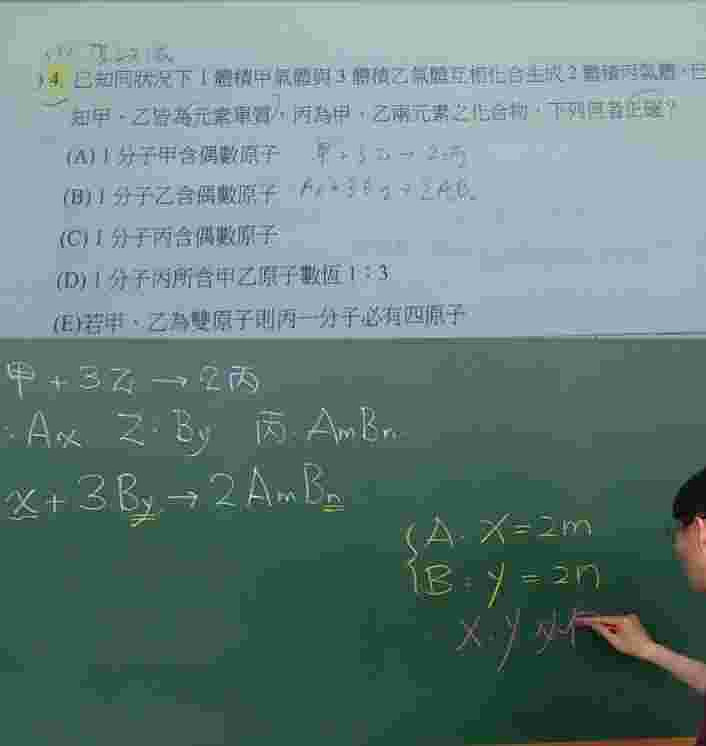 4. 已知同狀況下1體積甲氣體與3體積乙氣體互相化合生成2體積丙氣體，已
知甲、乙皆為元素單質，丙為甲、乙兩元素之化合物，下列何者正確？
(A) 1分子甲含偶數原子 甲+3乙→2丙
(B) 1分子乙含偶數原子
(C) 1分子丙含偶數原子
(D) 1分子丙所含甲乙原子數恆1：3
(E)若甲、乙為雙原子則丙一分子必有四原子
甲+3乙→2丙
: Ax 乙: By 丙: AmBn
x+3By→2AmBn
A: x=2m
B: y=2n
x.y 必